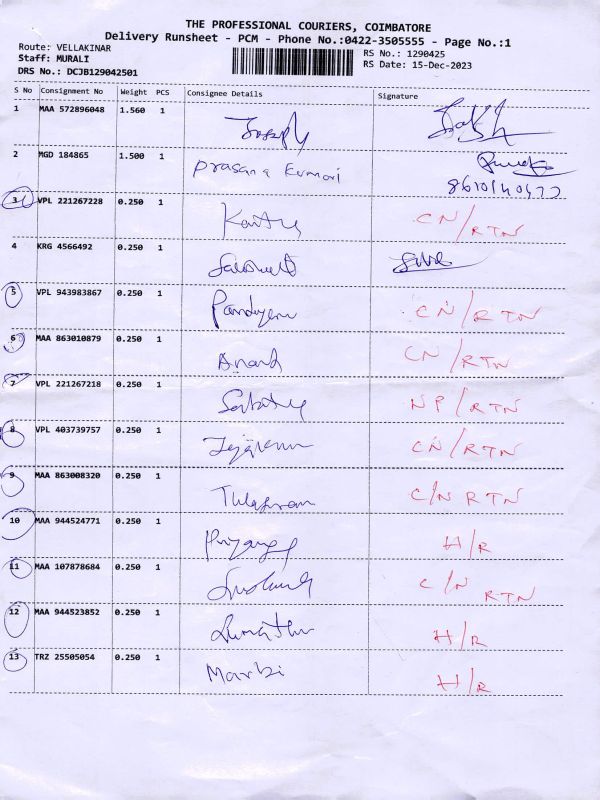 THE PROFESSIONAL COURIERS, COIMBATORE
Delivery Runsheet - PCM - Phone No.:0422-3505555 - Page No.:1
Route: VELLAKINAR
RS No.: 1290425
Staff: MURALI
RS Date: 15-Dec-2023
DRS No.: DCJB129042501
S No Consignment No Weight PCS Consignee Details Signature
1 MAA 572896048 1.560 1 Joseph
2 MGD 184865 1.500 1 Prasana Kumari
3 VPL 221267228 0.250 1 CN/RTN
4 KRG 4566492 0.250 1
5 VPL 943983867 0.250 1 CN/RTN
6 MAA 863010879 0.250 1 Anand CN/RTN
7 VPL 221267218 0.250 1 NP/RTN
8 VPL 403739757 0.250 1 CN/RTN
9 MAA 863008320 0.250 1 C/N RTN
10 MAA 944524771 0.250 1 H/R
11 MAA 107878684 0.250 1 C/N RTN
12 MAA 944523852 0.250 1 H/R
13 TRZ 25505054 0.250 1 H/R